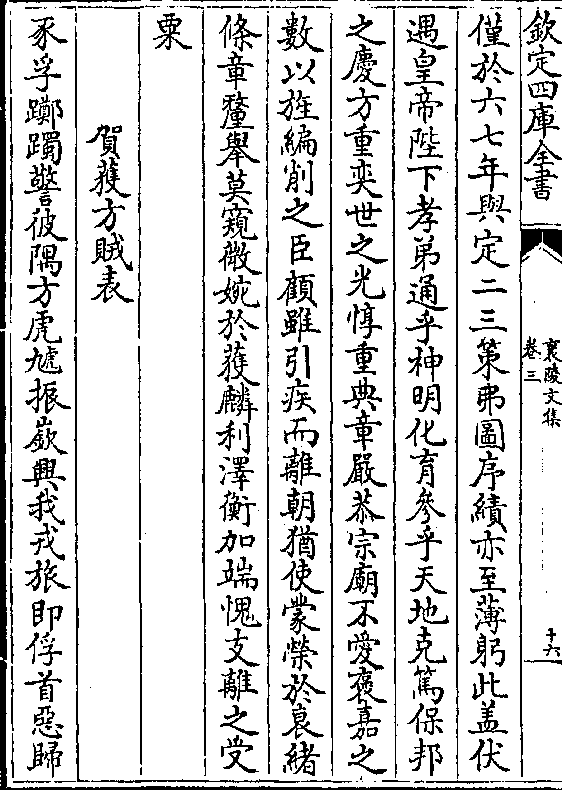 欽定四庫全書
襄陵文集
卷三
十六
僅於六七年與定二三第弗圖序績亦至薄躬此盖伏
遇皇帝陛下孝弟通乎神明化育參乎天地克篤保邦
之慶方重奕世之光惇重典章嚴恭宗廟不愛褒嘉之
數以旌編削之臣顧雖引疾而離朝猶使蒙榮於裒緒
條章釐舉莫窺微婉於獲麟利澤衡加端愧支離之受
粟
賀獲方賊表
豕孚躑躅警彼隅方虎虓振嶔興我戎旅即俘首惡歸